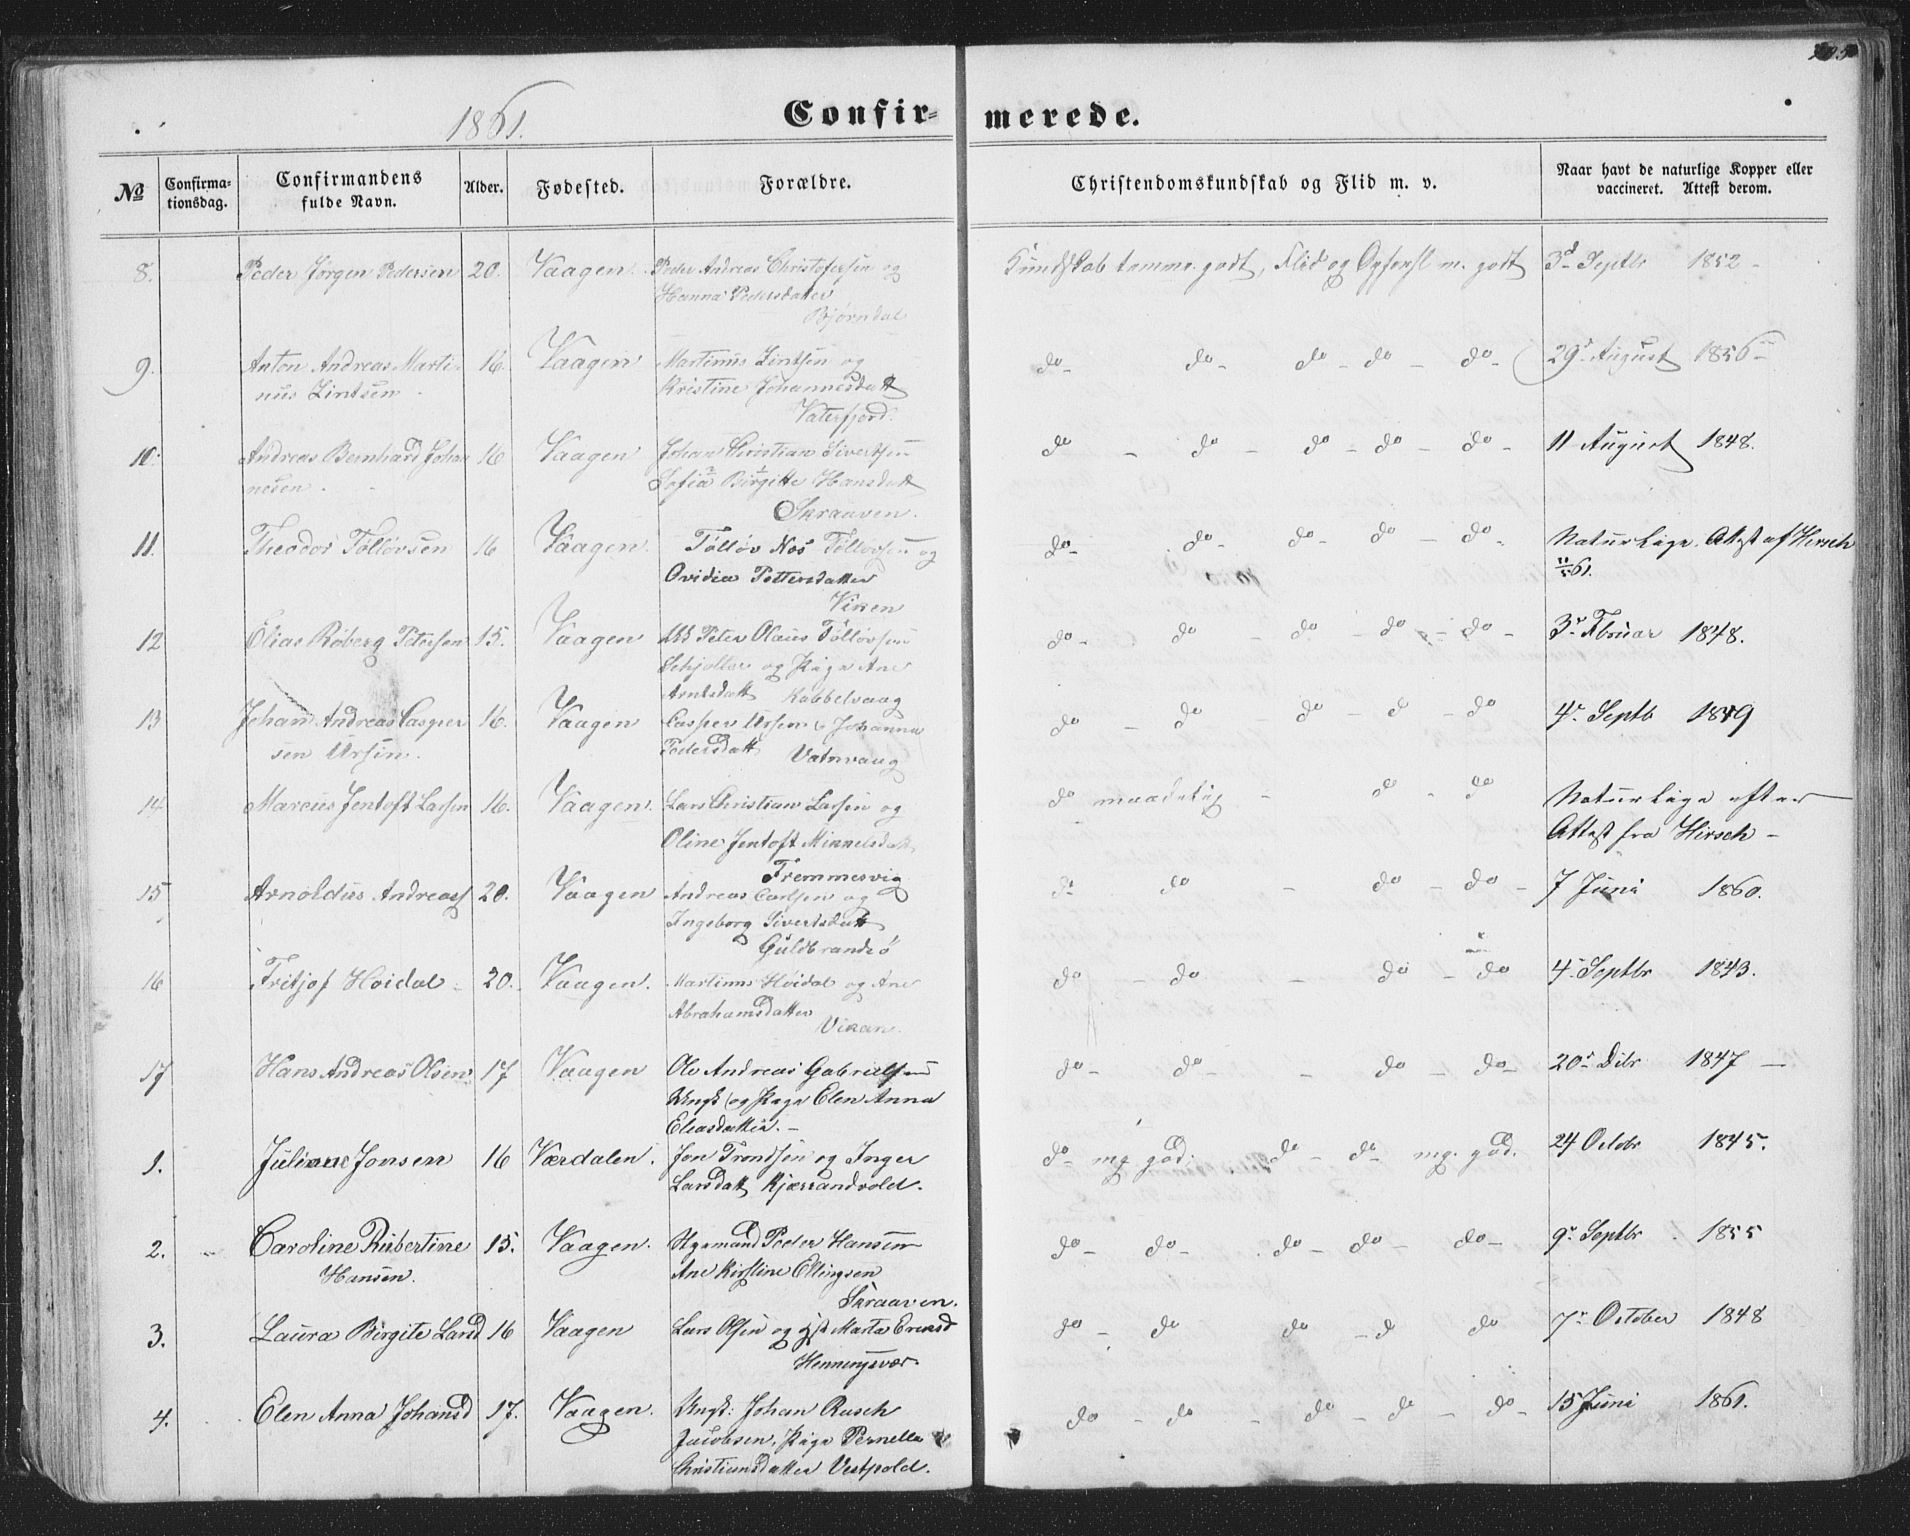 205
1861.
Confirmerede.
№ Confirmationsdag. Confirmandens fulde Navn. Alder. Fødested. Forældre. Christendomskundskab og Flid m. v. Naar havt de naturlige Kopper eller vaccineret. Attest derom.
8. Peder Jørgen Pedersen 20. Vaagen. Peder Andreas Christofersen og Kundskab temme. godt, Flid og Opførsl m. godt 3d Septbr 1852 -
Hanna Pedersdatter
Bjørndal
9. Anton Andreas Marti- 16. Vaagen Martinus Lintsen og do - do - do - do - do - 29d August 1856 -
nus Lintsen Kristine Johannesdatt
Vaterfjord.
10. Andreas Bernhard Johan 16 Vaagen Johan Christian Sivertsen do - do - do - do - do - 11 August 1848.
nesen. Sofia Birgitte Hansdatt
Skraaven.
11. Theodor Tolløvsen 16 Vaagen. Tolløv Nos Tolløvsen og do - do - do - do - do - Naturlige. Attest af Hirsch
Ovidia Pettersdatter 61.
Viken
12 Elias Roberg Petersen 15. Vaagen Peter Olaus Tolløvsen do - do - do - do - do - 3r Februar 1848.
Schjoller og Piga Ane
Arntsdatt Kabbelvaag
13 Johan Andreas Casper 16. Vaagen Casper Ursin & Johanna do - do - do - do - do 4r Septb 1849
sen Ursin. Pedersdatt Vatnvaag
14 Marcus Jentoft Larsen 16. Vaagen. Lars Christian Larsen og do maadelig - do - do Naturlige efter
Oline Jentoft Mikkelsdatt Attest fra Hirsch -
Fremmesvig
15 Arnoldus Andreass 20. Vaagen Andreas Carlsen og do do - do - do - 7 Juni 1860.
Ingeborg Sivertsdatt
Guldbrandsø
16 Fritjof Hoidal 20. Vaagen. Martinus Hoidal og Ane do - do - do - do 4r Septbr 1843.
Abrahamsdatter
Vikan.
17 Hans Andreas Olsen 17 Vaagen Ole Andreas Gabrielsen do - do - - do - do - 20r Dcbr 1847 -
Ungk og Piga Elen Anna
Eliasdatter. -
1. Juliane Jonsen 16 Værdalen. Jon Trondsen og Inger do - mg god. do - do - mg. god. 24 Octobr 1845.
Larsdatt Kjærrandvold.
2. Caroline Rubertine 15. Vaagen. Stgrmand Peder Hansen do - do - do - do - do - 9r Septbr 1855
Hansen. Ane Kirstine Ellingsen
Skraaven.
3. Laura Birgite Larsd 16 Vaagen Lars Olsen og Marta Eriksd do - do do - do do 7r October 1848
Henningsvær
4. Elen Anna Johansd 17. Vaagen. Ungk: Johan Rasch do - do - do - do - do - 15 Juni 1861.
Jacobsen, Piga Pernella
Christiansdatter Vestpold.